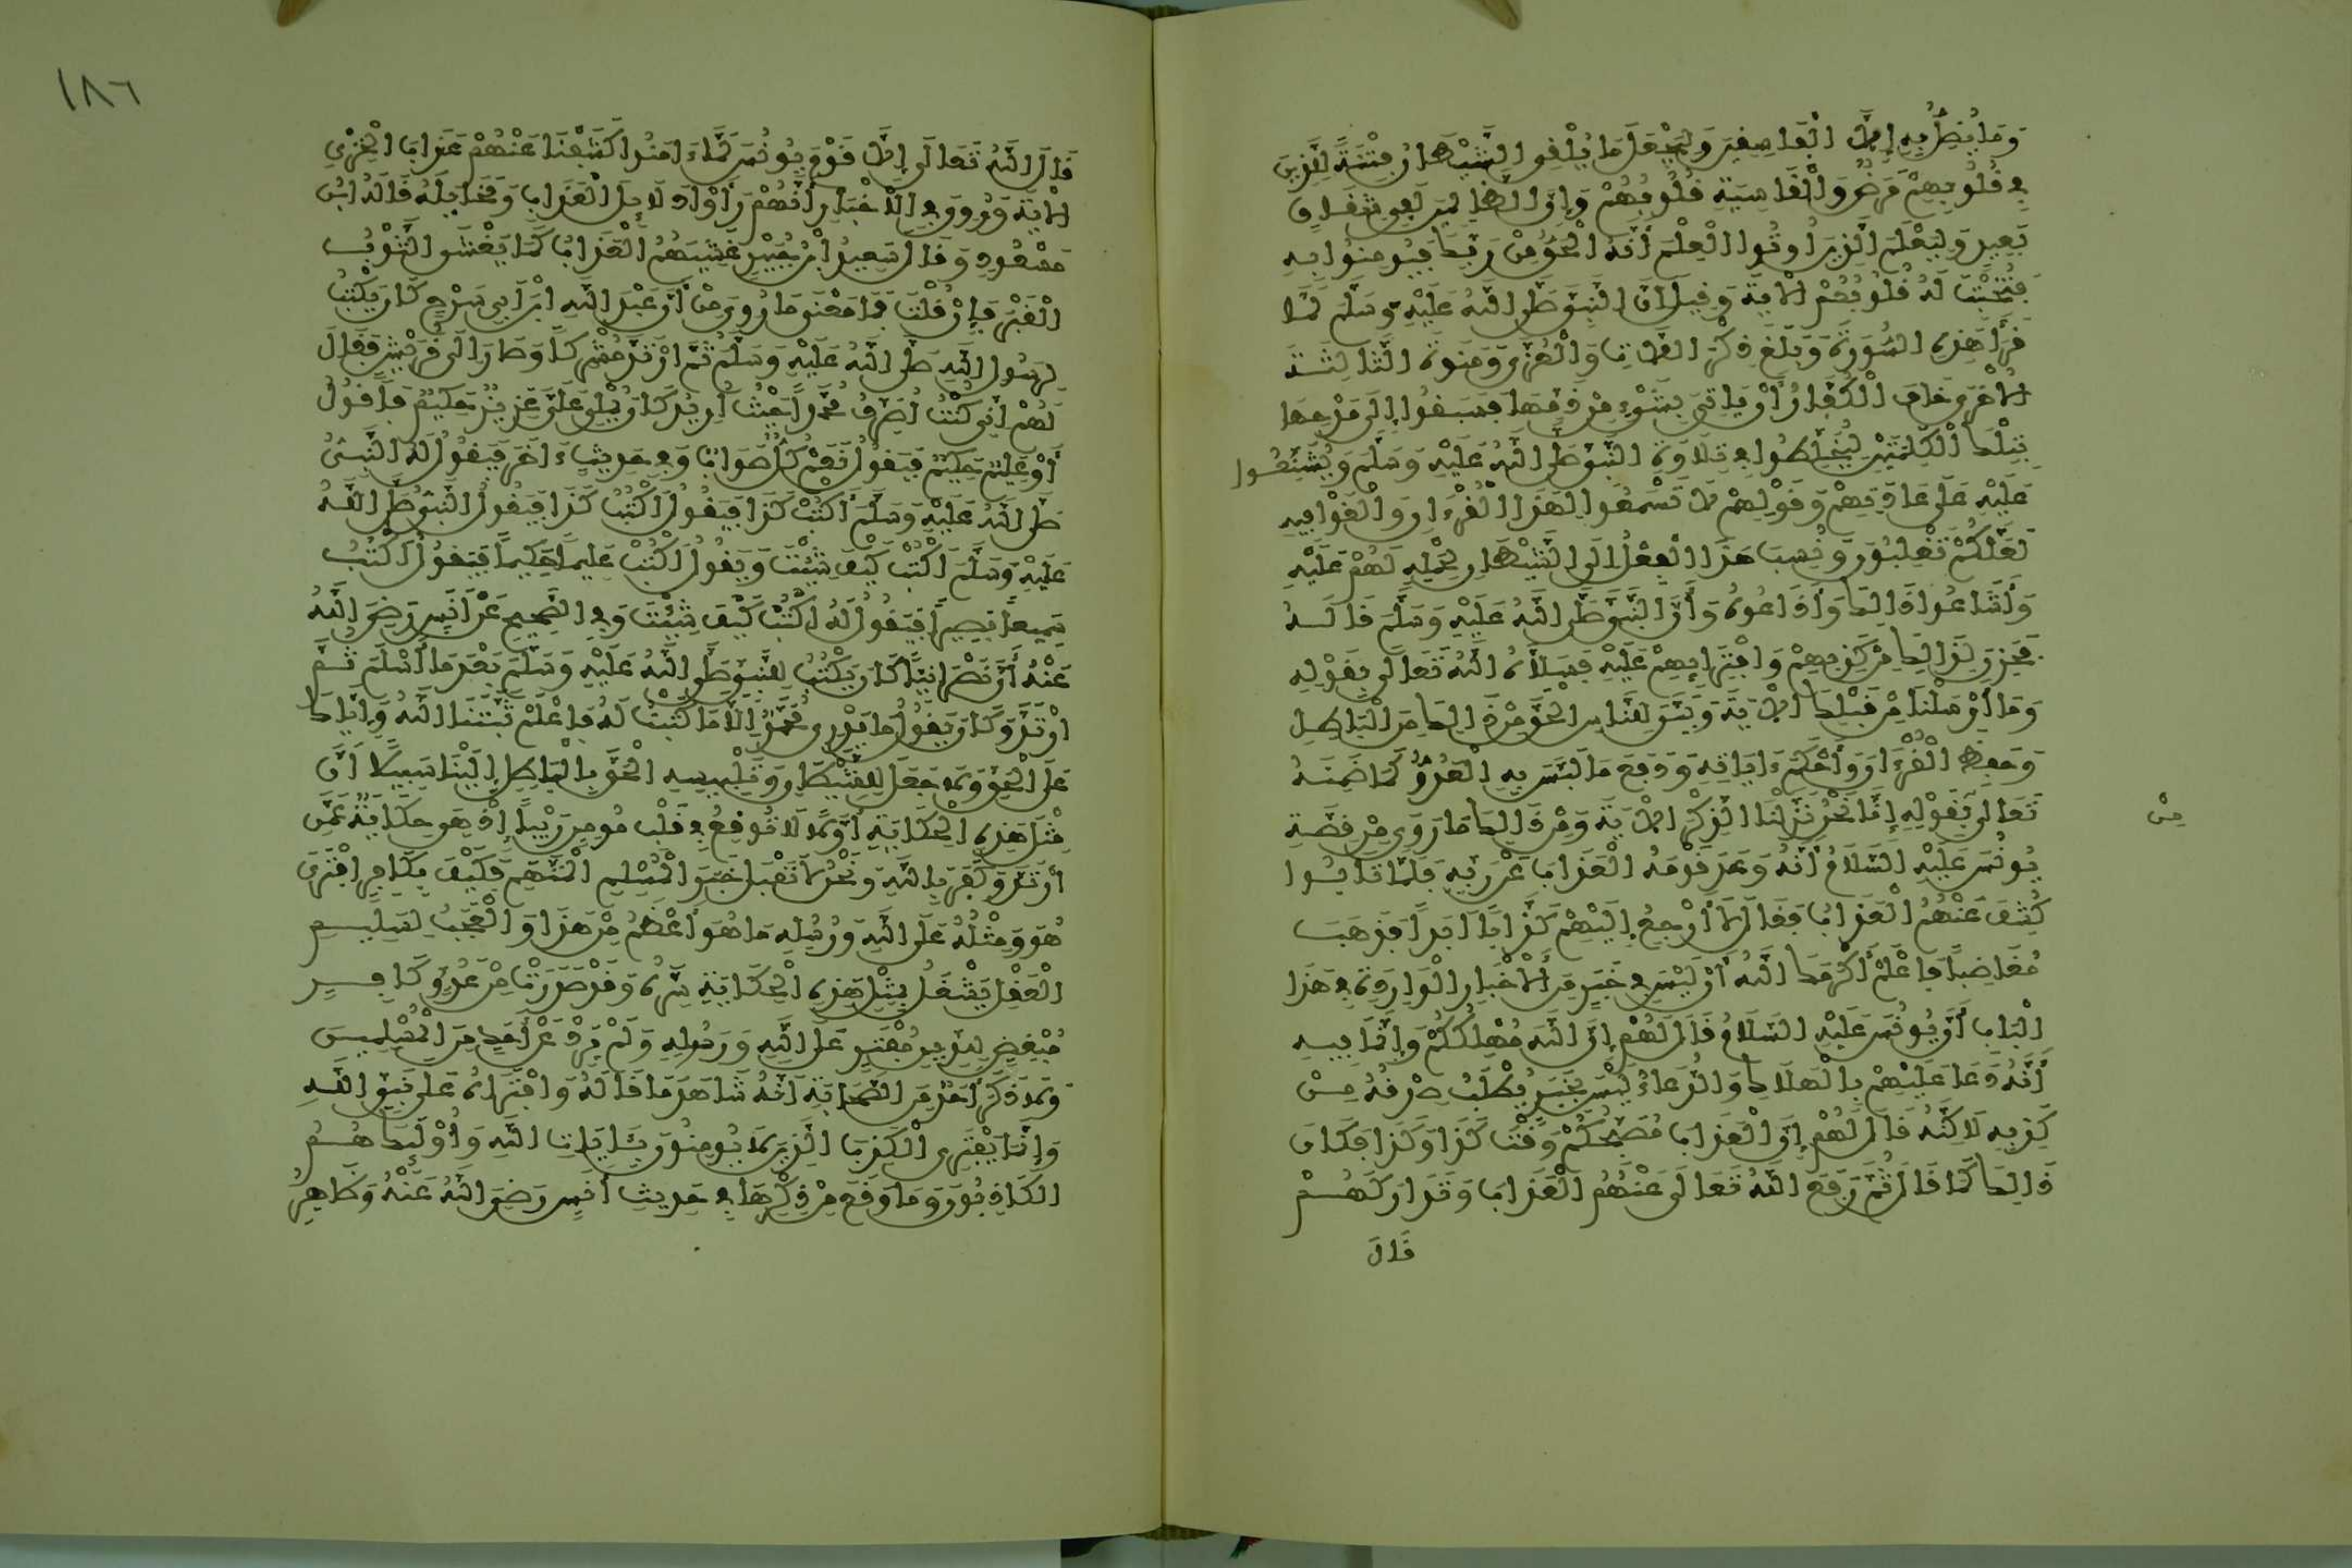 وَمَا يُضِلُّ بِهِ إِلَّا الْفَاسِقِينَ وَلِيَجْعَلَ مَا يُلْقِي الشَّيْطَانُ فِتْنَةً لِلَّذِينَ
فِي قُلُوبِهِمْ مَرَضٌ وَالْقَاسِيَةِ قُلُوبُهُمْ وَإِنَّ الظَّالِمِينَ لَفِي شِقَاقٍ
بَعِيدٍ وَلِيَعْلَمَ الَّذِينَ أُوتُوا الْعِلْمَ أَنَّهُ الْحَقُّ مِنْ رَبِّكَ فَيُؤْمِنُوا بِهِ
فَتُخْبِتَ لَهُ قُلُوبُهُمْ الْآيَةَ وَقِيلَ إِنَّ النَّبِيَّ صَلَّى اللَّهُ عَلَيْهِ وَسَلَّمَ لَمَّا
قَرَأَ هَذِهِ السُّورَةَ وَبَلَغَ ذِكْرَ اللَّاتَ وَالْعُزَّى وَمَنَوةَ الثَّالِثَةَ
الْأُخْرَى خَافَ الْكُفَّارُ أَنْ يَاتِيَ بِشَيْءٍ مِنْ ذَمِّهَا فَسَبَقُوا إِلَى مَدْحِهَا
بِتِلْكَ الْكَلِمَتَيْنِ لِيُخَلِّطُوا فِي تِلَاوَةِ النَّبِيِّ صَلَّى اللَّهُ عَلَيْهِ وَسَلَّمَ وَيُشَنِّعُوا
عَلَيْهِ عَلَى عَادَتِهِمْ وَقَوْلِهِمْ لَا تَسْمَعُوا لِهَذَا الْقُرْءَانِ وَالْغَوْا فِيهِ
لَعَلَّكُمْ تَغْلِبُونَ وَنُسِبَ هَذَا الْفِعْلُ إِلَى الشَّيْطَانِ لِحَمْلِهِ لَهُمْ عَلَيْهِ
وَأَشَاعُوا ذَلِكَ وَأَذَاعُوهُ وَأَنَّ النَّبِيَّ صَلَّى اللَّهُ عَلَيْهِ وَسَلَّمَ قَالَهُ
فَحَزِنَ لِذَلِكَ مِنْ كَذِبِهِمْ وَافْتِرَائِهِمْ عَلَيْهِ فَسَلَّاهُ اللَّهُ تَعَالَى بِقَوْلِهِ
وَمَا أَرْسَلْنَا مِنْ قَبْلِكَ الْآيَةَ وَبَيَّنَ لِلنَّاسِ الْحَقَّ مِنْ ذَلِكَ مِنَ الْبَاطِلِ
وَحَفِظَ الْقُرْءَانَ وَأَحْكَمَ ءَايَاتِهِ وَدَفَعَ مَا لَبَّسَ بِهِ الْعَدُوُّ كَمَا ضَمِنَهُ
تَعَالَى بِقَوْلِهِ إِنَّا نَحْنُ نَزَّلْنَا الذِّكْرَ الْآيَةَ وَمِنْ ذَلِكَ مَا رُوِيَ مِنْ قِصَّةِ
مِنْ
يُونُسَ عَلَيْهِ السَّلَامُ أَنَّهُ وَعَدَ قَوْمَهُ الْعَذَابَ عَنْ رَبِّهِ فَلَمَّا تَابُوا
كُشِفَ عَنْهُمُ الْعَذَابُ فَقَالَ لَا أَرْجِعُ إِلَيْهِمْ كَذَّابًا أَبَدًا فَذَهَبَ
مُغَاضِبًا فَاعْلَمْ أَكْرَمَكَ اللَّهُ أَنْ لَيْسَ فِي خَبَرٍ مِنَ الْأَخْبَارِ الْوَارِدَةِ فِي هَذَا
الْبَابِ أَنَّ يُونُسَ عَلَيْهِ السَّلَامُ قَالَ لَهُمْ إِنَّ اللَّهَ مُهْلِكُكُمْ وَإِنَّمَا فِيهِ
أَنَّهُ دَعَا عَلَيْهِمْ بِالْهَلَاكِ وَالدُّعَاءُ لَيْسَ بِخَبَرٍ يُطْلَبُ صِدْقُهُ مِنْ
كَذِبِهِ لَاكِنَّهُ قَالَ لَهُمْ إِنَّ الْعَذَابَ مُصَبِّحُكُمْ وَقْتَ كَذَا وَكَذَا فَكَانَ
ذَلِكَ كَمَا قَالَ ثُمَّ رَفَعَ اللَّهُ تَعَالَى عَنْهُمُ الْعَذَابَ وَتَدَارَكَهُمْ
قَالَ
١٨٦
قَالَ اللَّهُ تَعَالَى إِلَّا قَوْمَ يُونُسَ لَمَّا ءَامَنُوا كَشَفْنَا عَنْهُمْ عَذَابَ الْخِزْيِ
الْآيَةَ وَرُوِيَ فِي الْأَخْبَارِ أَنَّهُمْ رَأَوْا دَلَائِلَ الْعَذَابِ وَمَخَايِلَهُ قَالَهُ ابْنُ
مَسْعُودٍ وَقَالَ سَعِيدُ بْنُ جُبَيْرٍ غَشِيَهُمُ الْعَذَابُ كَمَا يَغْشَى الثَّوْبُ
الْقَبْرَ فَإِنْ قُلْتَ فَمَا مَعْنَى مَا رُوِيَ مِنْ أَنَّ عَبْدَ اللَّهِ ابْنَ أَبِي سَرْحٍ كَانَ يَكْتُبُ
لِرَسُولِ اللَّهِ صَلَّى اللَّهُ عَلَيْهِ وَسَلَّمَ ثُمَّ ارْتَدَّ مُشْرِكًا وَصَارَ إِلَى قُرَيْشٍ فَقَالَ
لَهُمْ إِنِّي كُنْتُ أُصَرِّفُ مُحَمَّدًا حَيْثُ أُرِيدُ كَانَ يُمْلِي عَلَيَّ عَزِيزٌ حَكِيمٌ فَأَقُولُ
أَوْ عَلِيمٌ حَكِيمٌ فَيَقُولُ نَعَمْ كُلٌّ صَوَابٌ وَفِي حَدِيثٍ ءَاخَرَ فَيَقُولُ لَهُ النَّبِيُّ
صَلَّى اللَّهُ عَلَيْهِ وَسَلَّمَ أَكْتُبْ كَذَا فَيَقُولُ أَكْتُبُ كَذَا فَيَقُولُ النَّبِيُّ صَلَّى اللَّهُ
عَلَيْهِ وَسَلَّمَ اكْتُبْ كَيْفَ شِئْتَ وَيَقُولُ اكْتُبْ عَلِيمًا حَكِيمًا فَيَقُولُ أَكْتُبُ
سَمِيعًا بَصِيرًا فَيَقُولُ لَهُ اكْتُبْ كَيْفَ شِئْتَ وَفِي الصَّحِيحِ عَنْ أَنَسٍ رَضِيَ اللَّهُ
عَنْهُ أَنَّ نَصْرَانِيًّا كَانَ يَكْتُبُ لِلنَّبِيِّ صَلَّى اللَّهُ عَلَيْهِ وَسَلَّمَ بَعْدَمَا أَسْلَمَ ثُمَّ
ارْتَدَّ وَكَانَ يَقُولُ مَا يَدْرِي مُحَمَّدٌ إِلَّا مَا كَتَبْتُ لَهُ فَاعْلَمْ ثَبَّتَنَا اللَّهُ وَإِيَّاكَ
عَلَى الْحَقِّ وَلَا جَعَلَ لِلشَّيْطَانِ وَتَلْبِيسِهِ الْحَقَّ بِالْبَاطِلِ إِلَيْنَا سَبِيلًا أَنَّ
مِثْلَ هَذِهِ الْحِكَايَةِ أَوَّلًا لَا تُوقِعُ فِي قَلْبِ مُومِنٍ رَيْبًا إِذْ هِيَ حِكَايَةٌ عَمَّنِ
ارْتَدَّ وَكَفَرَ بِاللَّهِ وَنَحْنُ لَا نَقْبَلُ خَبَرَ الْمُسْلِمِ الْمُتَّهَمِ فَكَيْفَ بِكَافِرٍ افْتَرَى
هُوَ وَمِثْلُهُ عَلَى اللَّهِ وَرُسُلِهِ مَا هُوَ أَعْظَمُ مِنْ هَذَا وَالْعَجَبُ لِسَلِيمِ
الْعَقْلِ يَشْغَلُ بِمِثْلِ هَذِهِ الْحِكَايَةِ سِرَّهُ وَقَدْ صَدَرَتْ مِنْ عَدُوٍّ كَافِرٍ
مُبْغِضٍ لِلدِّينِ مُفْتَرٍ عَلَى اللَّهِ وَرَسُولِهِ وَلَمْ يَرِدْ عَنْ أَحَدٍ مِنَ الْمُسْلِمِينَ
وَلَا ذَكَرَ أَحَدٌ مِنَ الصَّحَابَةِ أَنَّهُ شَاهَدَ مَا قَالَهُ وَافْتَرَاهُ عَلَى نَبِيِّ اللَّهِ
وَإِنَّمَا يَفْتَرِي الْكَذِبَ الَّذِينَ لَا يُومِنُونَ بِئَايَاتِ اللَّهِ وَأُوْلَئِكَ هُمُ
الْكَاذِبُونَ وَمَا وَقَعَ مِنْ ذِكْرِهَا فِي حَدِيثِ أَنَسٍ رَضِيَ اللَّهُ عَنْهُ وَظَاهِرِ